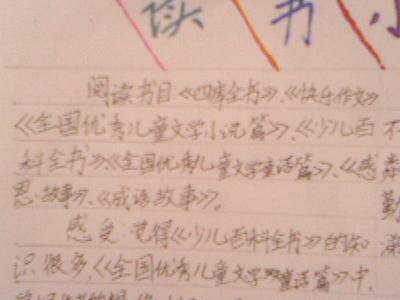 读书小
阅读书目《四库全书》、《快乐作文》
《全国优秀儿童文学小说篇》、《少儿百
科全书》、《全国优秀儿童文学童话篇》、《感
恩故事》、《成语故事》。
感受:觉得《少儿百科全书》的知
识很多《全国优秀儿童文学童话篇》中,